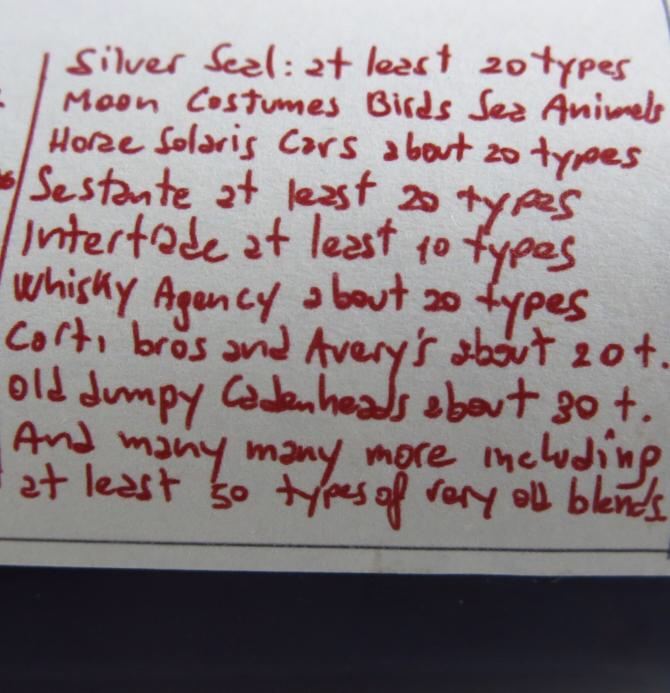 Silver Seal: at least 20 types
Moon Costumes Birds Sea Animals
Horse Solaris Cars about 20 types
Sestante at least 20 types
Intertrade at least 10 types
Whisky Agency about 20 types
Corti bros and Avery's about 20 t.
Old dumpy Cadenheads about 30 t.
And many many more including
at least 50 types of very old blends